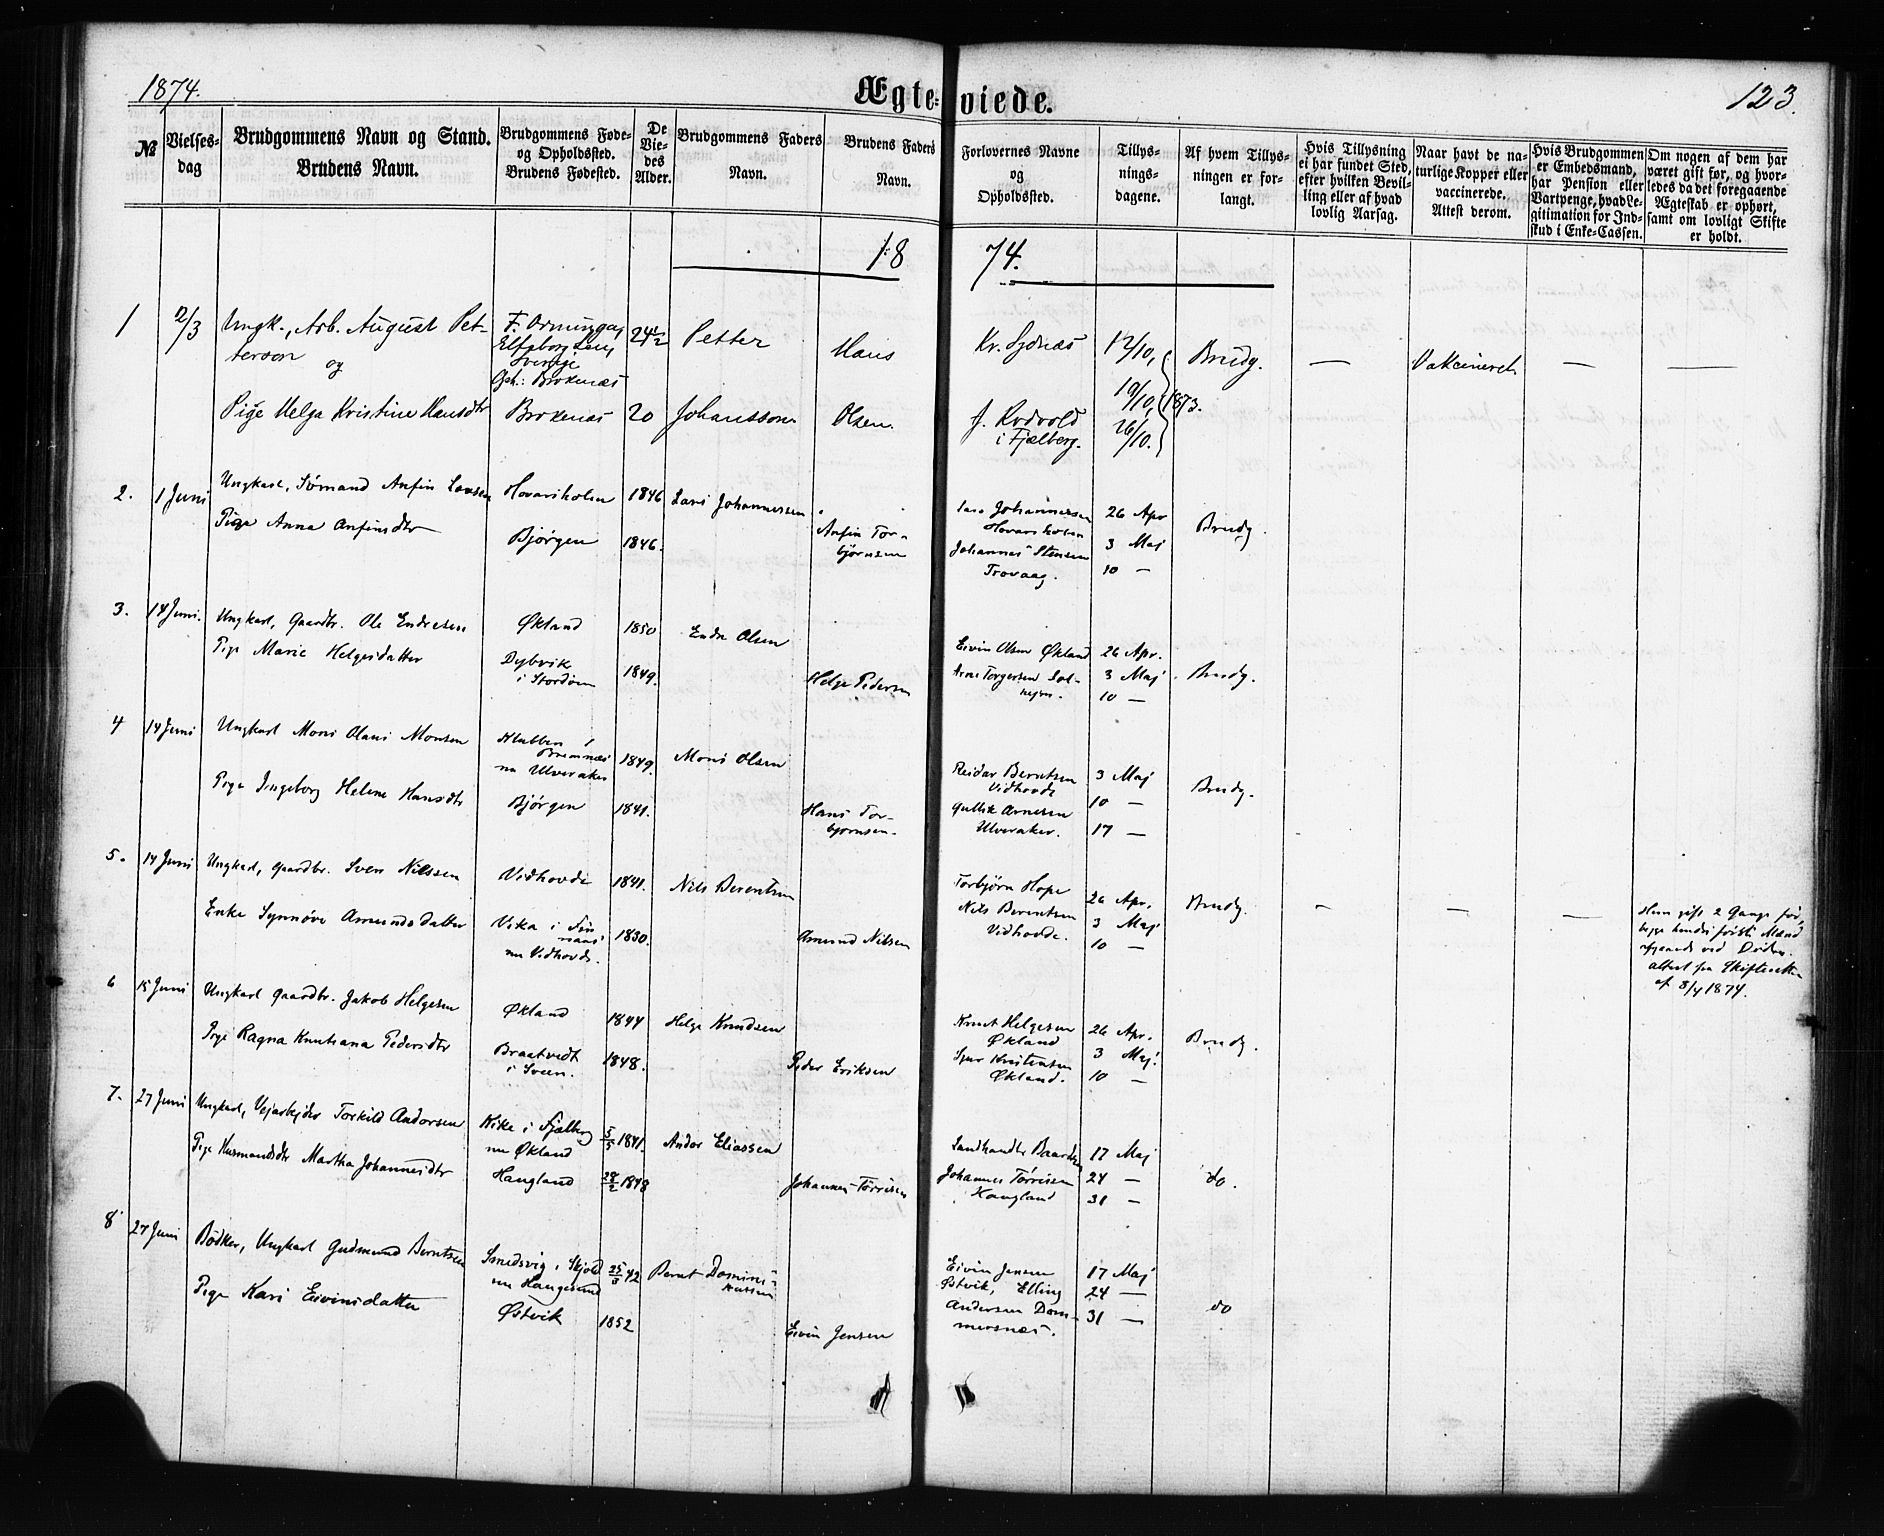 1874.
Ægteviede.
123.
№
Vielsesdag
Brudgommens Navn og Stand.
Brudens Navn.
Brudgommens Føde-
og Opholdssted.
Brudens Fødested.
De
Vie-
des
Alder.
Brudgommens Faders
Navn.
Brudens Faders
Navn.
Forlovernes Navne
og
Opholdssted.
Tillys-
nings-
dagene.
Af hvem Tillys-
ningen er for-
langt.
Hvis Tillysning
ei har fundet Sted,
efter hvilken Bevil-
ling eller af hvad
lovlig Aarsag.
Naar havt de na-
turlige Kopper eller
vaccinerede.
Attest derom.
Hvis Brudgommen
er Embedsmand,
har Pension eller
Vartpenge, hvad Le-
gitimation for Ind-
skud i Enke-Cassen.
Om nogen af dem har
været gift før, og hvor-
ledes da det foregaaende
Ægteskab er ophørt,
samt om lovligt Skifte
er holdt.
18 74.
1 12/3 Ungk., Arb. August Pet-
terson
og
Elfsborg Len,
Sverige
Oph.: Brokenæs
24 1/2 Petter Hans
Kr. 12/10, Brudg. — Vakcineret — —
Pige Helga Kristine Hansdtr Brokenæs 20 Johansson Olsen.
19/10, 1873.
i Fjælberg. 26/10.
2. 1 Juni Ungkarl, Sømand Anfin Larsen 1846 Lars Johannessen
Pige Anna Anfinsdtr Bjørgen 1846. Anfin Tor-
bjørnsen
Lars Johannessen 26 Apr
Johannes Stensen 3 Maj Brudg.
Trovaag. 10 —
3. 14 Juni. Ungkarl, Gaardbr. Ole Endresen Økland 1850 Endre Olsen
Pige Marie Helgesdatter Dybvik
i Stordøen 1849. Helge Pedersen
Eivin Olsen Økland 26 Apr.
Arne Torgersen Sol-
hejm. 3 Maj Brudg.
10 —
4 14 Juni Ungkarl Mons Olaus Monsen Klubben i
Bremnæs
nu Ulveraker 1849. Mons Olsen
Pige Ingeborg Helene Hansdtr Bjørgen 1841. Hans Tor-
bjørnsen.
Reidar Berntsen 3 Maj
Vidhovde 10 — Brudg.
Gullik Arnesen
Ulveraker. 17 —
5. 14 Juni Ungkarl, Gaardbr. Sven Nilssen Vidhovde 1841. Nils Berentsen
Enke Synnøve Amundsdatter Vika i Fin-
naas
nu Vidhovde. 1830. Amund Nilsen
Torbjørn Hope 26 Apr. Brudg. — — —
Nils Berentsen 3 Maj
Vidhovde. 10 —
Hun gift 2 Gange før,
begge hendes første Mænd
afgaaede ved Døden.
Attest fra Skifteretten
af 8/4 1874.
6 15 Juni Ungkarl Gaardbr. Jakob Helgesen Økland 1844 Helge Knudsen
Pige Ragna Knutiana Pedersdtr Braatvedt
i Sveen. 1848. Peder Eriksen
Knut Helgesen 26 Apr.
Økland 3 Maj. Brudg.
Sjur Kristensen
Økland. 10 —
7. 27 Juni Ungkarl, Vejarbejder Torkild Andorsen i Fjælberg
nu Økland 5/5 1841. Andor Eliassen
Pige Husmandsdtr Martha Johannesdtr Haugland 28/2 1848 Johannes Tørrisen
Landhandler Baardsen 17 Maj
Johannes Tørrisen 24 — do.
Haugland 31 —
8 27 Juni Bødker, Ungkarl Gudmund Berntsen Smedsvig i Skjold
nu Haugesund 42 Bernt Domini-
kussen
Pige Kari Eivinsdatter Østvik 1852 Eivin Jensen
Eivin Jensen 17 Maj
Østvik, Elling 24 — do
Andersen Dom-
mersnæs. 31 —